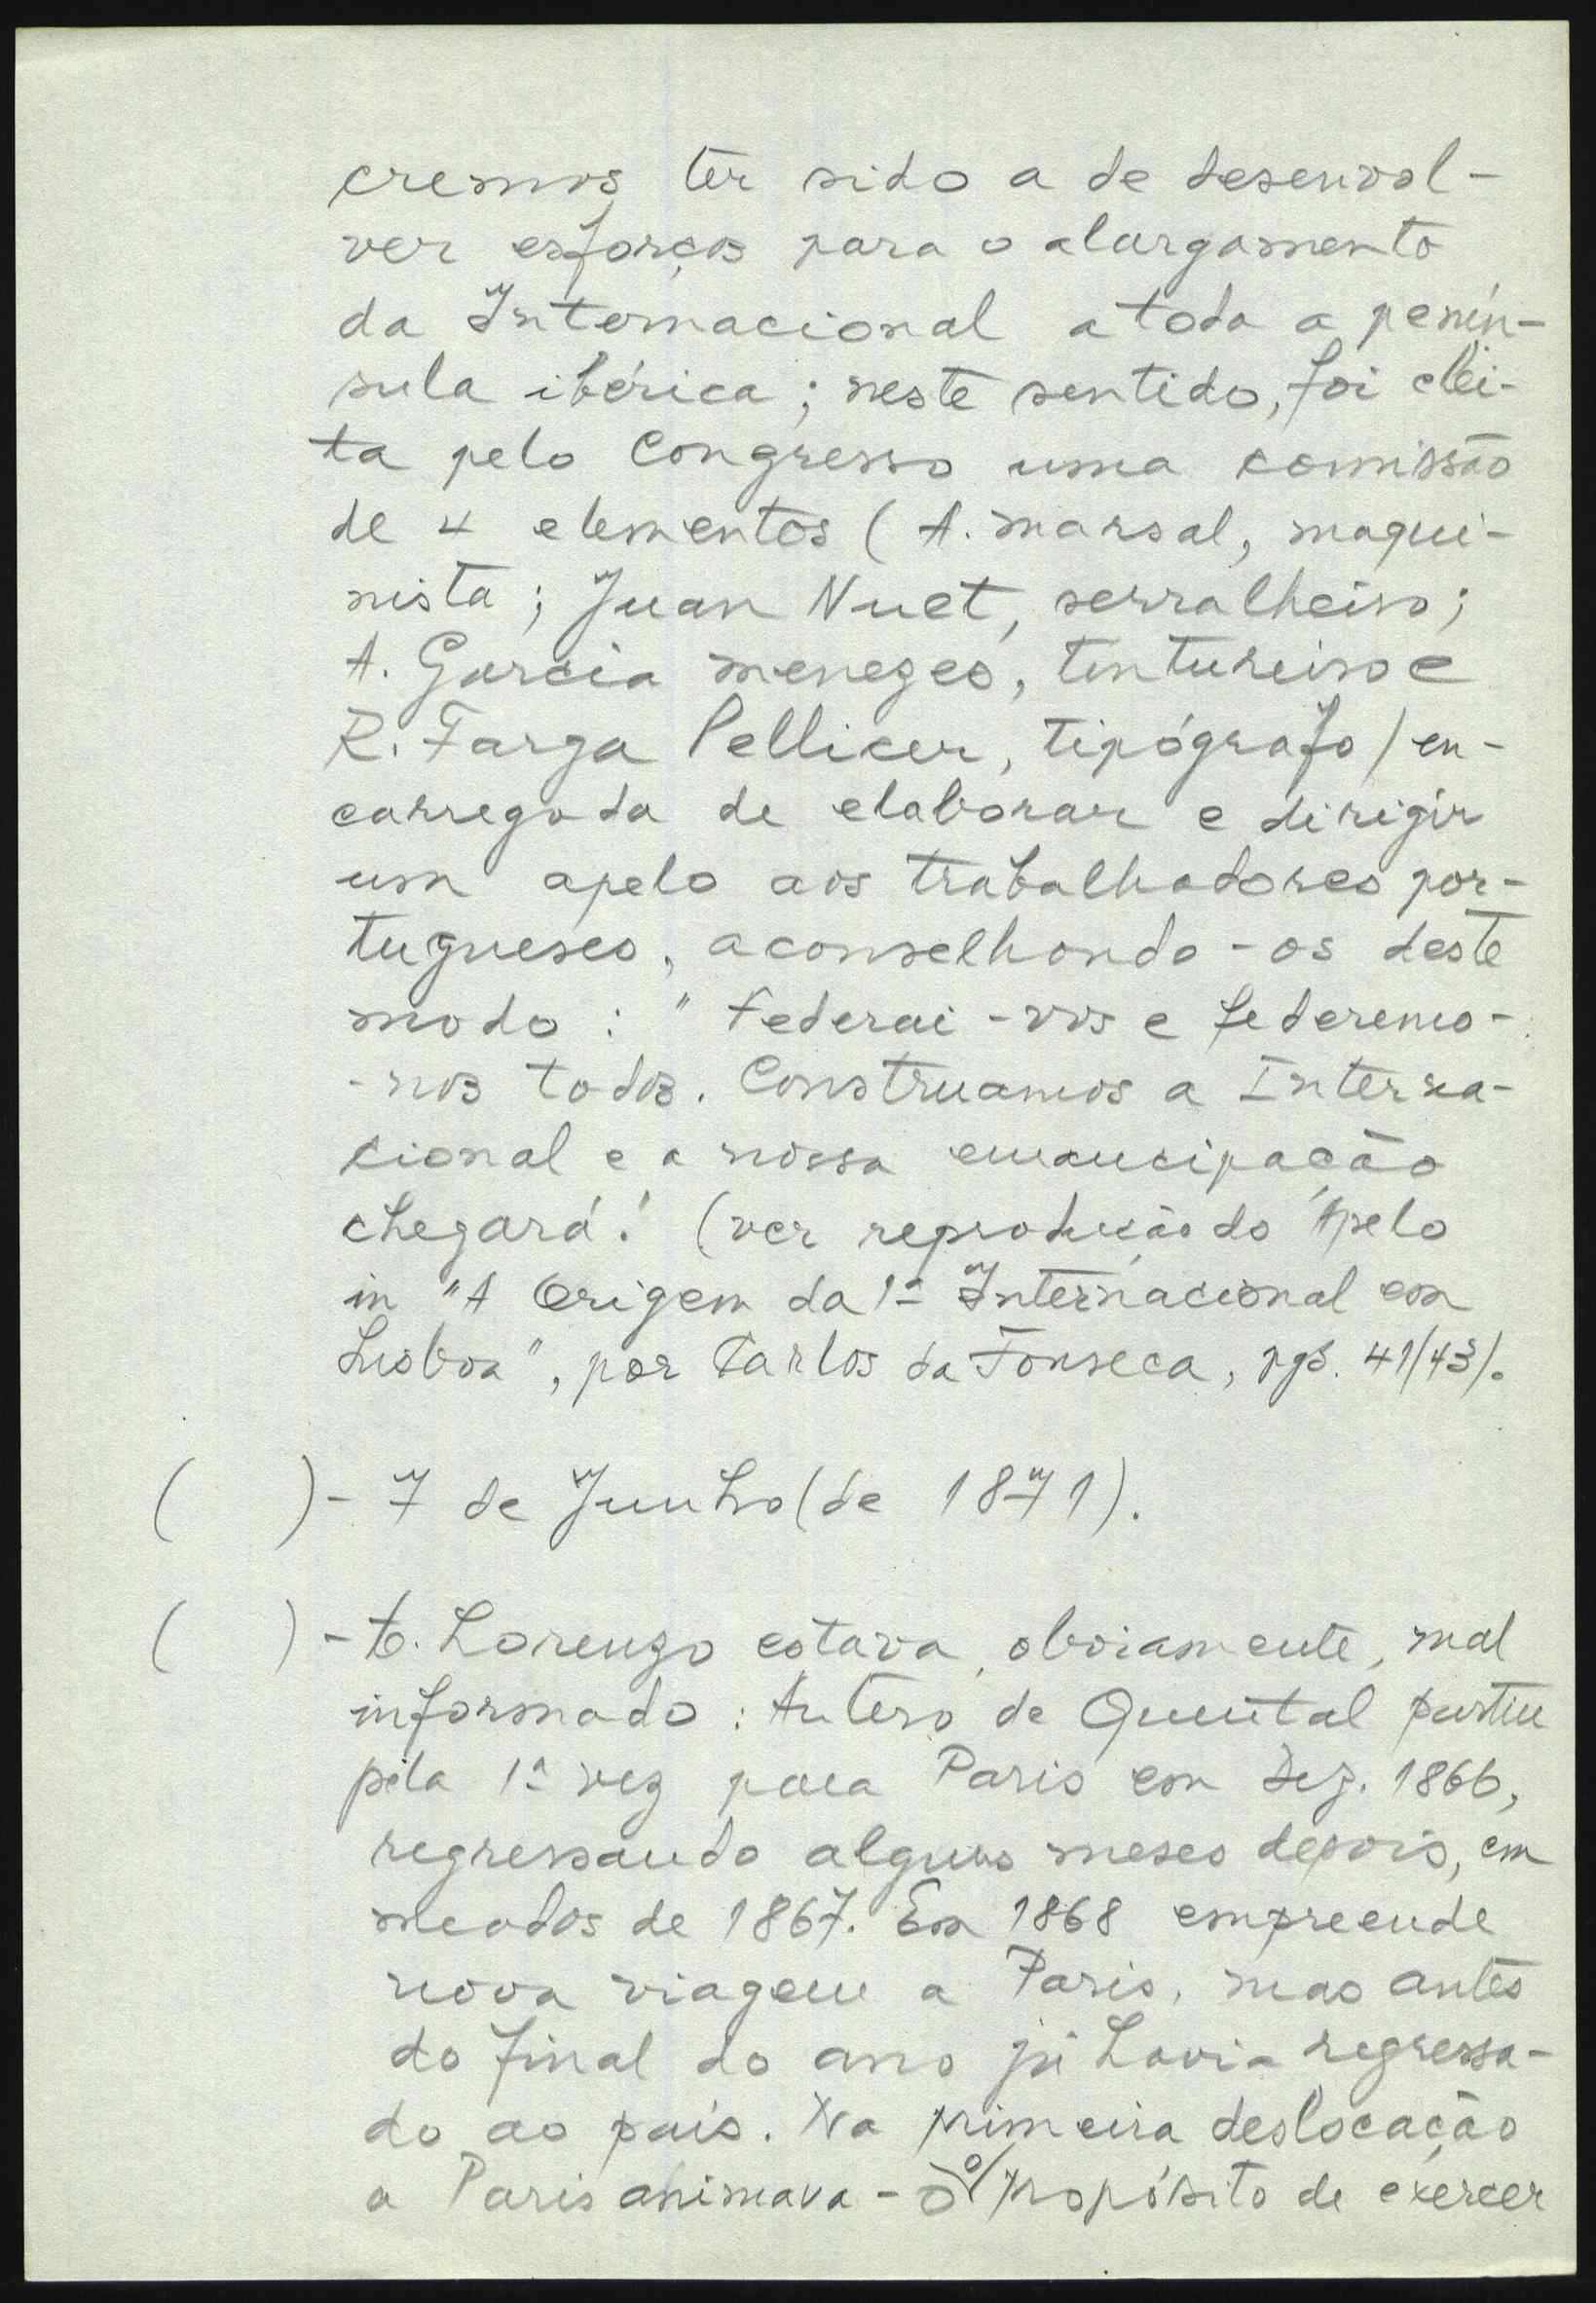 cremos ter sido a de desenvol-
ver esforços para o alargamento
da Internacional a toda a penín-
sula ibérica; neste sentido, foi elei-
ta pelo Congresso uma comissão
de 4 elementos (A. Marsal, maqui-
nista; Juan Nuet, serralheiro;
A. Garcia Meneges, tintureiro e
R. Farga Pellicer, tipógrafo) en-
carregada de elaborar e dirigir
um apelo aos trabalhadores por-
tugueses, aconselhando-os deste
modo: "Federai-vos e federemo-
-nos todos. Construamos a Interna-
cional e a nossa emancipação
chegará! (ver reprodução do Apelo
in "A Origem da 1ª Internacional em
Lisboa", por Carlos da Fonseca, pgs. 41/43).
( ) - 7 de Junho (de 1871).
( ) - A. Lorenzo estava, obviamente, mal
informado: Antero de Quental partiu
pela 1ª vez para Paris em Dez. 1866,
regressando alguns meses depois, em
meados de 1867. Em 1868 empreende
nova viagem a Paris, mas antes
do final do ano já havia regressa-
do ao país. Na primeira deslocação
a Paris animava-o o propósito de exercer